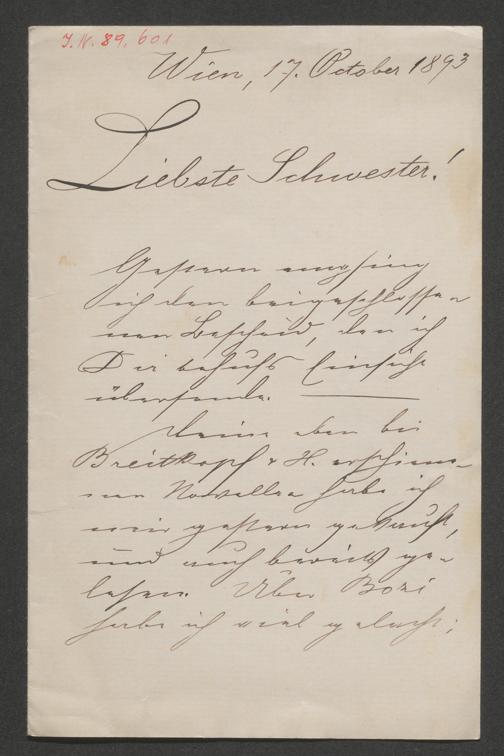 J.N. 89.601
Wien, 17. October 1893
Liebste Schwester!
Gestern empfing
ich den beigeschlosse-
nen Bescheid, den ich
Dir behufs Einsicht
übersende. —
Deine eben bei
Breitkopf & H. erschiene-
nen Novellen habe ich
mir gestern gekauft,
und auch bereits ge-
lesen. Über Bozi
habe ich viel gelacht;